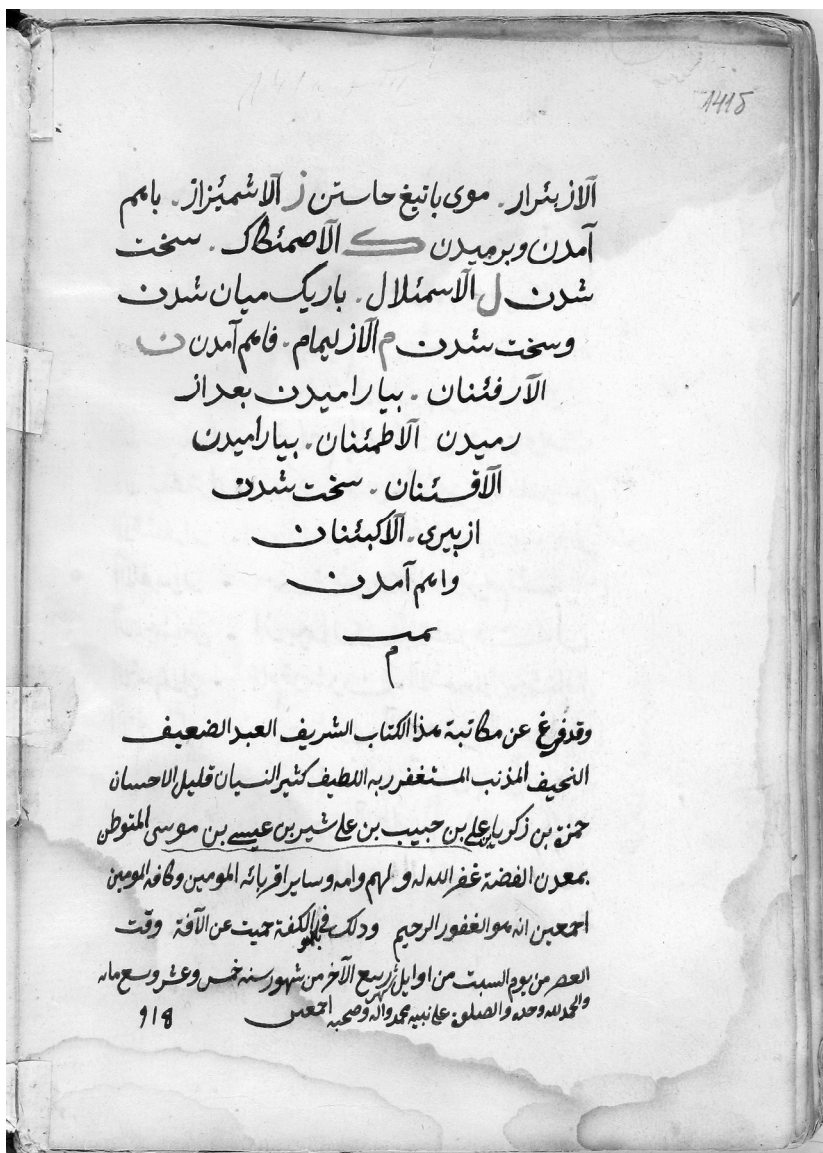 1415
الازبئرار. موی با تیغ خاستن ز الاشمئزاز. باهم
آمدن و برمیدن ک الاصمئکاک. سخت
شدن ل الاسمئلال. باریک میان شدن
وسخت شدن م الازلیمام. فاهم آمدن ن
الارفئنان. بیارامیدن بعد از
رمیدن الاطمئنان. بیارامیدن
الاقسئنان. سخت شدن
از پیری. الاکبئنان
واهم آمدن
تمت
م
وقد فرغ عن مکاتبة هذا الکتاب الشریف العبد الضعیف
النحیف المذنب المستغفر ربه اللطیف کثیر النسیان قلیل الاحسان
حمزة بن زکریا بن علی بن حبیب بن علی شیر بن عیسی بن موسی المتوطن
بمعدن الفضة غفر الله له و وامه وسایر اقربائه المومنین وکافه المومنین
اجمعین انه هو الغفور الرحیم وذلک فی الکفة حمیت عن الآفة وقت
العصر من یوم السبت من اوایل شهر ربیع الآخر من شهور سنه خمس وعشر وتسع مائه
والحمد لله وحده والصلوة علی نبیه محمد وآله وصحبه اجمعین
918